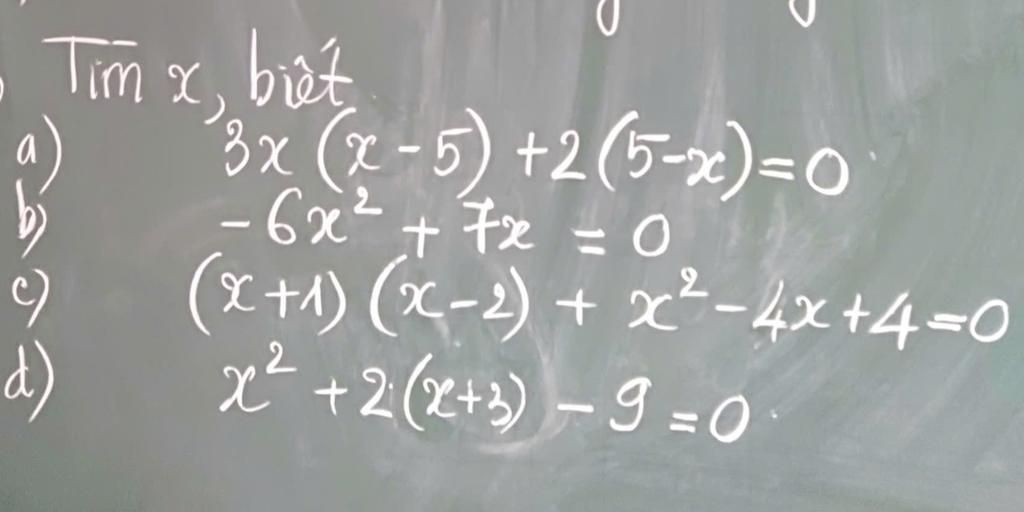 Tìm x, biết
a) 3x (x - 5) + 2(5 - x) = 0
b) - 6x² + 7x = 0
c) (x + 1) (x - 2) + x² - 4x + 4 = 0
d) x² + 2(x + 3) - 9 = 0